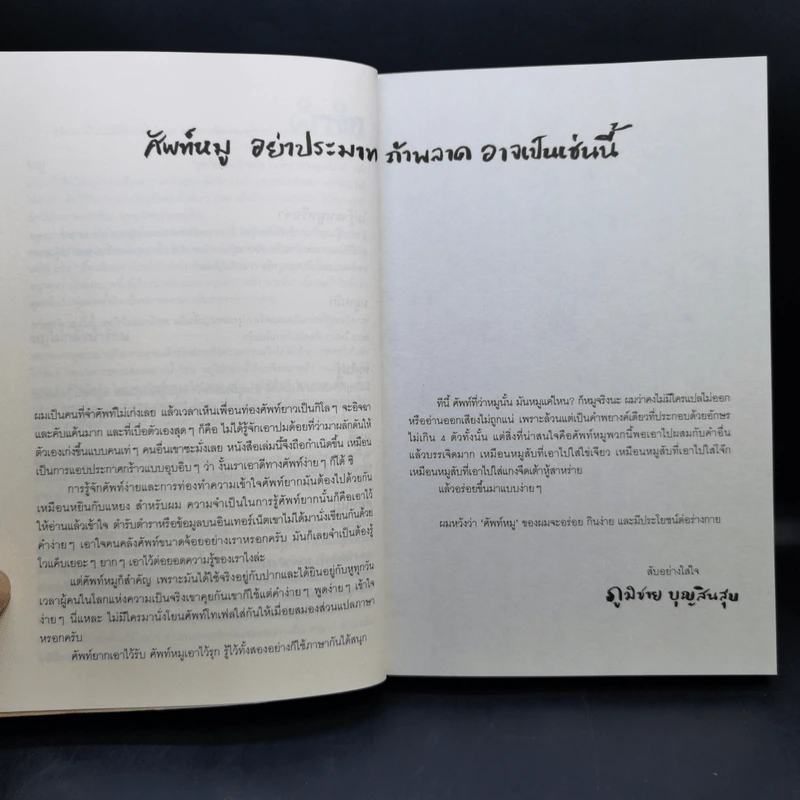 ศัพท์หมู อย่าประมาท ถ้าพลาด อาจเป็นเช่นนี้
ผมเป็นคนที่จำศัพท์ไม่เก่งเลย แล้วเวลาเห็นเพื่อนท่องศัพท์ยาวเป็นกิโลๆ จะอิจฉา
และคับแค้นมาก และที่เบื่อตัวเองสุดๆ ก็คือ ไม่ได้รู้จักเอาปมด้อยที่ว่ามาผลักดันให้
ตัวเองเก่งขึ้นแบบคนเท่ๆ คนอื่นเขาซะมั่งเลย หนังสือเล่มนี้จึงถือกำเนิดขึ้น เหมือน
เป็นการแอบประกาศกร้าวแบบอุบอิบๆ ว่า งั้นเราเอาดีทางศัพท์ง่ายๆ ก็ได้ ชิ
การรู้จักศัพท์ง่ายและการท่องทำความเข้าใจศัพท์ยากมันต้องไปด้วยกัน
เหมือนหยินกับแหยง สำหรับผม ความจำเป็นในการรู้ศัพท์ยากนั้นก็คือเอาไว้
ให้อ่านแล้วเข้าใจ ตำรับตำราหรือข้อมูลบนอินเทอร์เน็ตเขาไม่ได้มานั่งเขียนกันด้วย
คำง่ายๆ เอาใจคนคลังศัพท์ขนาดจ้อยอย่างเราหรอกครับ มันก็เลยจำเป็นต้องรู้
ไวแค็บเยอะๆ ยากๆ เอาไว้ต่อยอดความรู้ของเราไงล่ะ
แต่ศัพท์หมูก็สำคัญ เพราะมันได้ใช้จริงอยู่กับปากและได้ยินอยู่กับหูทุกวัน
เวลาผู้คนในโลกแห่งความเป็นจริงเขาคุยกันเขาก็ใช้แต่คำง่ายๆ พูดง่ายๆ เข้าใจ
ง่ายๆ นี่แหละ ไม่มีใครมานั่งโยนศัพท์โทเฟลใส่กันให้เมื่อยสมองส่วนแปลภาษา
หรอกครับ
ศัพท์ยากเอาไว้รับ ศัพท์หมูเอาไว้รุก รู้ไว้ทั้งสองอย่างก็ใช้ภาษากันได้สนุก
ทีนี้ ศัพท์ที่ว่าหมูนั้น มันหมูแค่ไหน? ก็หมูจริงนะ ผมว่าคงไม่มีใครแปลไม่ออก
หรืออ่านออกเสียงไม่ถูกแน่ เพราะล้วนแต่เป็นคำพยางค์เดียวที่ประกอบด้วยอักษร
ไม่เกิน 4 ตัวทั้งนั้น แต่สิ่งที่น่าสนใจคือศัพท์หมูพวกนี้พอเอาไปผสมกับคำอื่น
แล้วบรรเจิดมาก เหมือนหมูสับที่เอาไปใส่ไข่เจียว เหมือนหมูสับที่เอาไปใส่โจ๊ก
เหมือนหมูสับที่เอาไปใส่แกงจืดเต้าหู้สาหร่าย
แล้วอร่อยขึ้นมาแบบง่ายๆ
ผมหวังว่า 'ศัพท์หมู' ของผมจะอร่อย กินง่าย และมีประโยชน์ต่อร่างกาย
สับอย่างใส่ใจ
ภูมิชาย บุญสินสุข